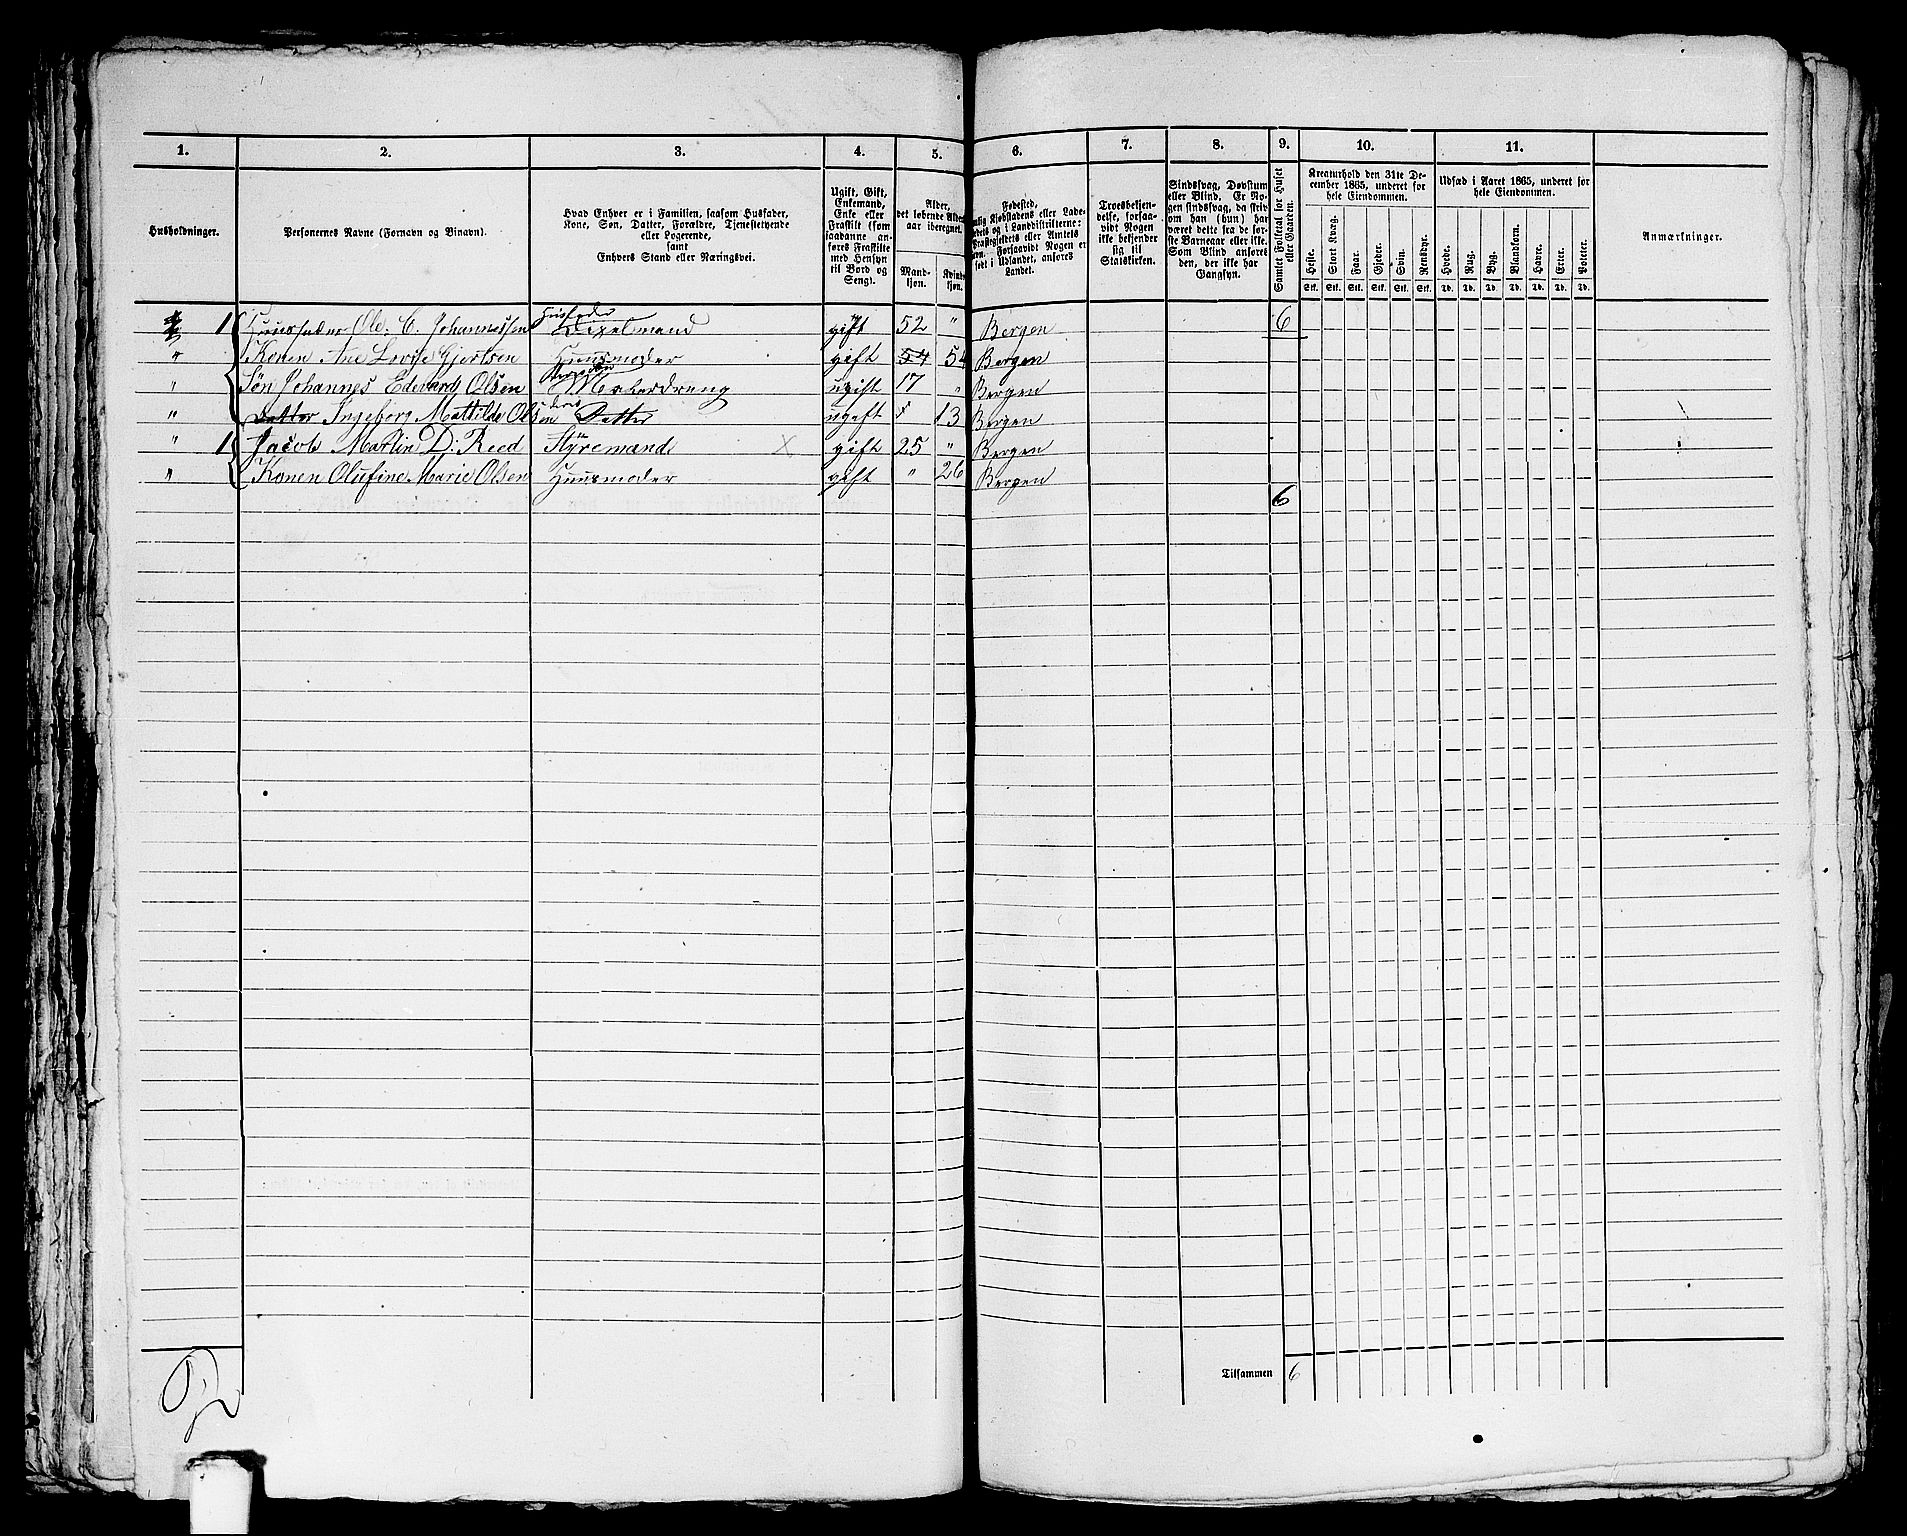 1. 2. 3. 4. 5. 6. 7. 8. 9. 10. 11.
Husholdninger.
Personernes Navne (Fornavn og Binavn).
Hvad Enhver er i Familien, saasom Husfader,
Kone, Søn, Datter, Forældre, Tjenestetyende
eller Logerende,
samt
Enhvers Stand eller Næringsvei.
Ugift, Gift,
Enkemand,
Enke eller
Fraskilt (som
saadanne an-
føres Fraskilte
med Hensyn
til Bord og
Seng).
Alder,
det løbende Alders-
aar iberegnet.
Mand-
kjøn.
Kvinde-
kjøn.
Fødested,
Kjøbstadens eller Lade-
stedets og i Landdistrikterne:
Præstegjeldets eller Amtets
Navn. Forsaavidt Nogen er
født i Udlandet, anføres
Landet.
Troesbekjen-
delse, forsaa-
vidt Nogen
ikke bekjender
sig til
Statskirken.
Sindssvag, Døvstum
eller Blind. Er No-
gen sindssvag, da skriv
om han (hun) har
været dette fra de før-
ste Barneaar eller ikke.
Som Blind anføres
den, der ikke har
Gangsyn.
Samlet Folketal for Huset
eller Gaarden.
Kreaturhold den 31te De-
cember 1865, underet for
hele Eiendommen.
Heste. Stort Kvæg. Faar. Gjeder. Svin. Rensdyr.
Stk. Stk. Stk. Stk. Stk. Stk.
Udsæd i Aaret 1865, underet for
hele Eiendommen.
Hvede. Rug. Byg. Blandkorn. Havre. Erter. Poteter.
Td. Td. Td. Td. Td. Td. Td.
Anmærkninger.
1 Huusfader Ole C. Johannessen Husfader gift 52 " Bergen 6
" Konen Ane Lovise Gjertsen Huusmoder gift 54 54 Bergen
" Søn Johannes Edevard Olsen ugift 17 " Bergen
" Datter Ingeborg Mathilde Olsen deres Datter ugift 13 Bergen
" 1 Jacob Martin D: Reed Styremand X gift 25 " Bergen
" Konen Olufine Marie Olsen Huusmoder gift " 26 Bergen
6
Tilsammen 6